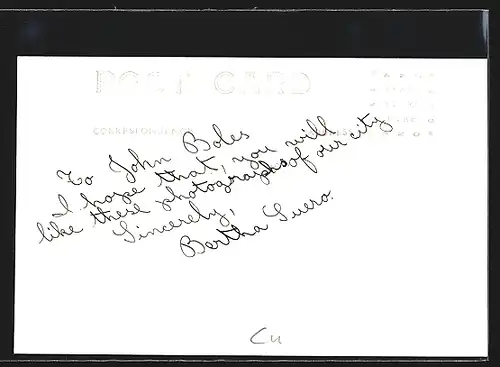 POST CARD
CORRESPONDENCE
To John Boles
I hope that, you will
like these photographs of our city
Sincerely,
Bertha Suero.
Cu